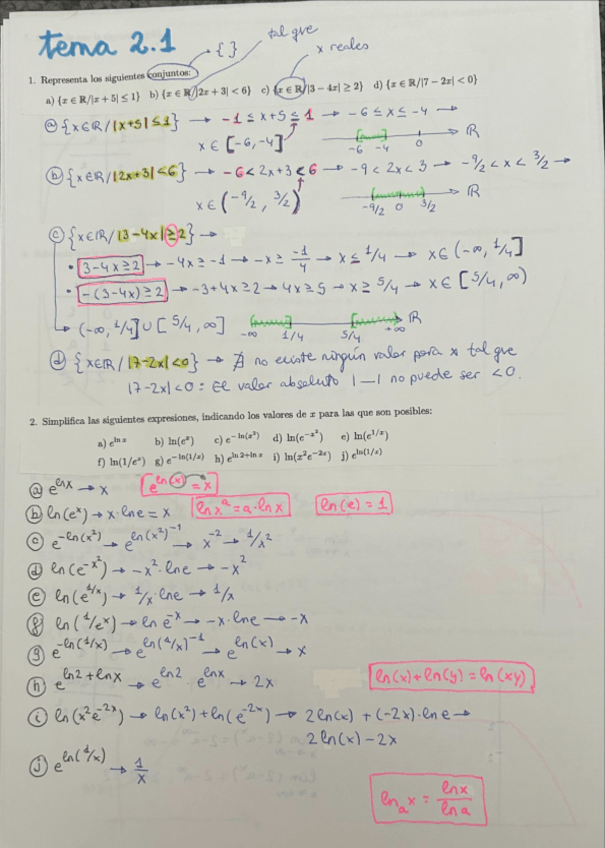 tema 2.1
→ { }
tal que
x reales
1. Representa los siguientes conjuntos:
a) {x ∈ R/|x + 5| ≤ 1} b) {x ∈ R/|2x + 3| < 6} c) {x ∈ R/|3 − 4x| ≥ 2} d) {x ∈ R/|7 − 2x| < 0}
ⓐ {x∈R/|x+5|≤1} → -1 ≤ x+5 ≤ 1 → -6 ≤ x ≤ -4 →
x ∈ [-6,-4]
-6 -4 0 R
ⓑ {x∈R/|2x+3|<6} → -6<2x+3<6 → -9<2x<3 → -9/2<x<3/2 →
x∈(-9/2, 3/2)
-9/2 0 3/2 R
ⓒ {x∈R/|3-4x|≥2} →
• 3-4x≥2 → -4x≥-1 → -x≥ -1/4 → x≤1/4 → x∈(-∞, 1/4]
• -(3-4x)≥2 → -3+4x≥2 → 4x≥5 → x≥5/4 → x∈[5/4, ∞)
→ (-∞, 1/4]∪[5/4, ∞]
-∞ 1/4 5/4 +∞ R
ⓓ {x∈R/|7-2x|<0} → ∄ no existe ningún valor para x tal que
|7-2x|<0: El valor absoluto |—| no puede ser <0.
2. Simplifica las siguientes expresiones, indicando los valores de x para las que son posibles:
a) e^{ln x} b) ln(e^x) c) e^{−ln(x²)} d) ln(e^{−x²}) e) ln(e^{1/x})
f) ln(1/e^x) g) e^{−ln(1/x)} h) e^{ln 2+ln x} i) ln(x²e^{−2x}) j) e^{ln(1/x)}
ⓐ e^{lnx} → x
e^{ln(x)} = x
ⓑ ln(e^x) → x·lne = x
lnx^a = a·lnx
ln(e) = 1
ⓒ e^{-ln(x²)} → e^{ln(x²)^{-1}} → x^{-2} → 1/x²
ⓓ ln(e^{-x²}) → -x²·lne → -x²
ⓔ ln(e^{1/x}) → 1/x·lne → 1/x
ⓕ ln(1/e^x) → ln e^{-x} → -x·lne → -x
ⓖ e^{-ln(1/x)} → e^{ln(1/x)^{-1}} → e^{ln(x)} → x
ⓗ e^{ln2+lnx} → e^{ln2}·e^{lnx} → 2x
ln(x)+ln(y)=ln(xy)
ⓘ ln(x²e^{-2x}) → ln(x²)+ln(e^{-2x}) → 2ln(x)+(-2x)·lne →
2ln(x)-2x
ⓙ e^{ln(1/x)} → 1/x
ln_a x = lnx/lna